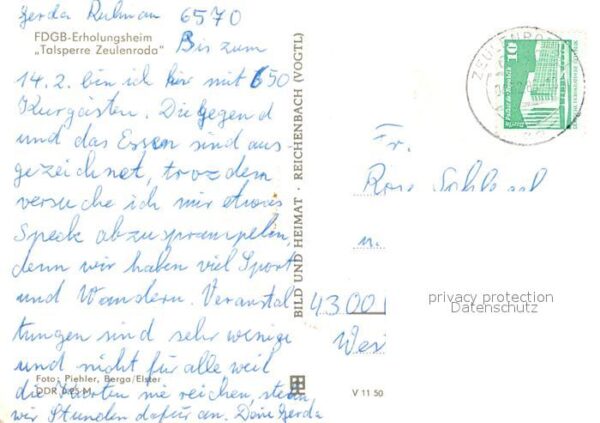 Gerda Ruhman 6570
FDGB-Erholungsheim
„Talsperre Zeulenroda"
Bis zum
14.2. bin ich hier mit 650
Kurgästen. Die Gegend
und das Essen sind aus-
gezeichnet, trozdem
versuche ich mir etwas
Speck abzustrampeln,
denn wir haben viel Sport
und Wandern. Veranstal
tungen sind sehr wenige
und nicht für alle weil
die Karten nie reichen, stehn
wir Stunden dafür an. Deine Gerda
Foto: Piehler, Berga/Elster
DDR 0,25 M
BILD UND HEIMAT · REICHENBACH (VOGTL)
V 11 50
ZEULENRO
10
Fr.
Rose
u.
4300
privacy protection
Datenschutz